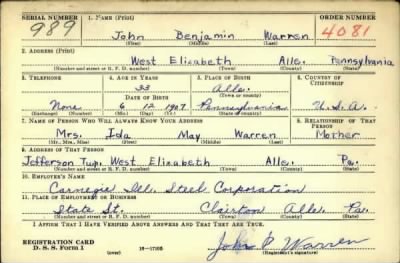 SERIAL NUMBER 1. NAME (Print) ORDER NUMBER
989 John Benjamin Warren 4081
(First) (Middle) (Last)
2. ADDRESS (Print)
West Elizabeth Alle. Pennsylvania
(Number and street or R. F. D. number) (Town) (County) (State)
3. TELEPHONE 4. AGE IN YEARS 5. PLACE OF BIRTH 6. COUNTRY OF CITIZENSHIP
33 Alle.
DATE OF BIRTH (Town or county)
None 6 12 1907 Pennsylvania U.S.A.
(Exchange) (Number) (Mo.) (Day) (Yr.) (State or country)
7. NAME OF PERSON WHO WILL ALWAYS KNOW YOUR ADDRESS 8. RELATIONSHIP OF THAT PERSON
Mrs. Ida May Warren Mother
(Mr., Mrs., Miss) (First) (Middle) (Last)
9. ADDRESS OF THAT PERSON
Jefferson Twp. West Elizabeth Alle. Pa.
(Number and street or R. F. D. number) (Town) (County) (State)
10. EMPLOYER'S NAME
Carnegie Ill. Steel Corporation
11. PLACE OF EMPLOYMENT OR BUSINESS
State St. Clairton Alle. Pa.
(Number and street or R. F. D. number) (Town) (County) (State)
I AFFIRM THAT I HAVE VERIFIED ABOVE ANSWERS AND THAT THEY ARE TRUE.
REGISTRATION CARD
D. S. S. Form 1 (over) 16—17105 (Registrant's signature)
Warren